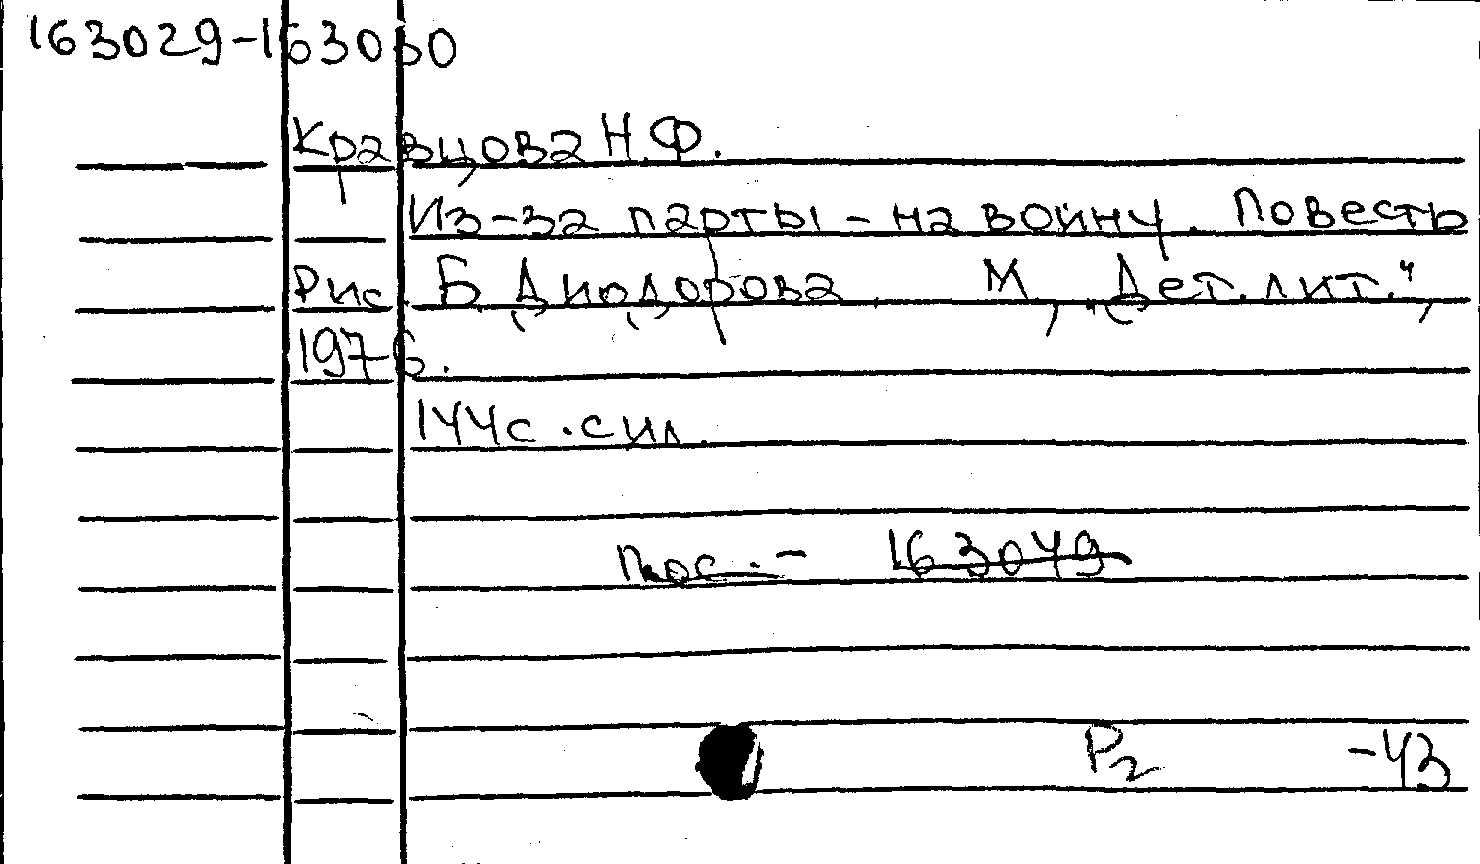 163029-163030
Кравцова Н.Ф.
Из-за парты - на войну. Повесть
Рис. Б. Диодорова. М., "Дет. лит.",
1976.
144с. с ил.
163049
Р2 -43